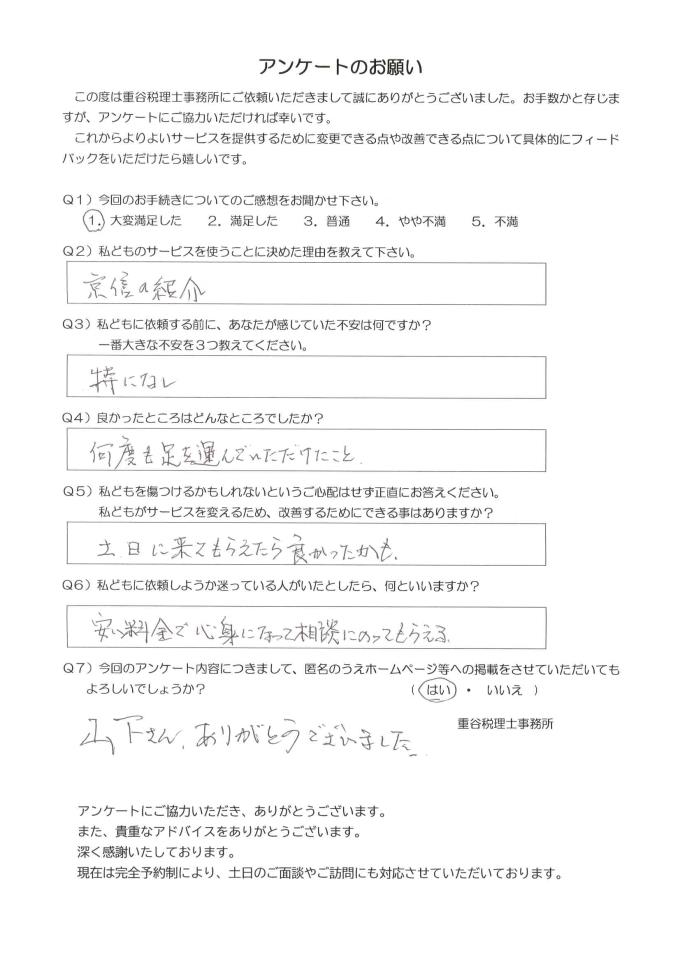 アンケートのお願い
この度は重谷税理士事務所にご依頼いただきまして誠にありがとうございました。お手数かと存じま
すが、アンケートにご協力いただければ幸いです。
これからよりよいサービスを提供するために変更できる点や改善できる点について具体的にフィード
バックをいただけたら嬉しいです。
Q1）今回のお手続きについてのご感想をお聞かせ下さい。
1．大変満足した　2．満足した　3．普通　4．やや不満　5．不満
Q2）私どものサービスを使うことに決めた理由を教えて下さい。
京信の紹介
Q3）私どもに依頼する前に、あなたが感じていた不安は何ですか？
一番大きな不安を３つ教えてください。
特になし
Q4）良かったところはどんなところでしたか？
何度も足を運んでいただけたこと.
Q5）私どもを傷つけるかもしれないというご心配はせず正直にお答えください。
私どもがサービスを変えるため、改善するためにできる事はありますか？
土日に来てもらえたら良かったかも.
Q6）私どもに依頼しようか迷っている人がいたとしたら、何といいますか？
安い料金で心身になって相談にのってもらえる.
Q7）今回のアンケート内容につきまして、匿名のうえホームページ等への掲載をさせていただいても
よろしいでしょうか？　（ はい ・ いいえ ）
重谷税理士事務所
山下さん、ありがとうございました.
アンケートにご協力いただき、ありがとうございます。
また、貴重なアドバイスをありがとうございます。
深く感謝いたしております。
現在は完全予約制により、土日のご面談やご訪問にも対応させていただいております。